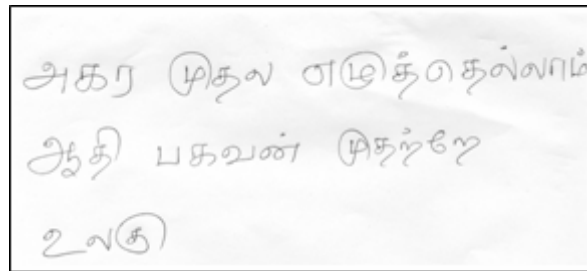 அகர முதல எழுத்தெல்லாம்
ஆதி பகவன் முதற்றே
உலகு